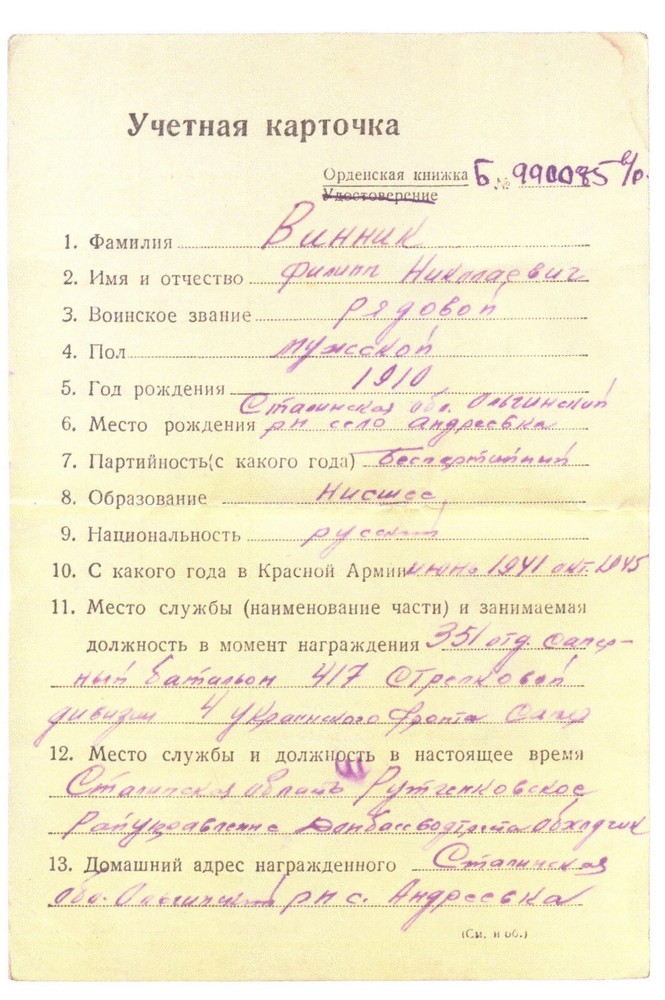 Учетная карточка
Орденская книжка Б № 990085
Удостоверение
1. Фамилия Винник
2. Имя и отчество Филипп Николаевич
3. Воинское звание рядовой
4. Пол мужской
5. Год рождения 1910
Сталинская обл. Ольгинский
6. Место рождения рн село Андреевка
7. Партийность (с какого года) беспартийный
8. Образование нисшее
9. Национальность русский
10. С какого года в Красной Армии июнь 1941 окт. 1945
11. Место службы (наименование части) и занимаемая
должность в момент награждения 351 отд. сапер-
ный батальон 417 стрелковой
дивизии 4 украинского фронта сапер
12. Место службы и должность в настоящее время
Сталинская область Рутченковское
Райуправление Донбассводтреста обходчик
13. Домашний адрес награжденного Сталинская
обл. Ольгинский рн с. Андреевка
(См. н об.)